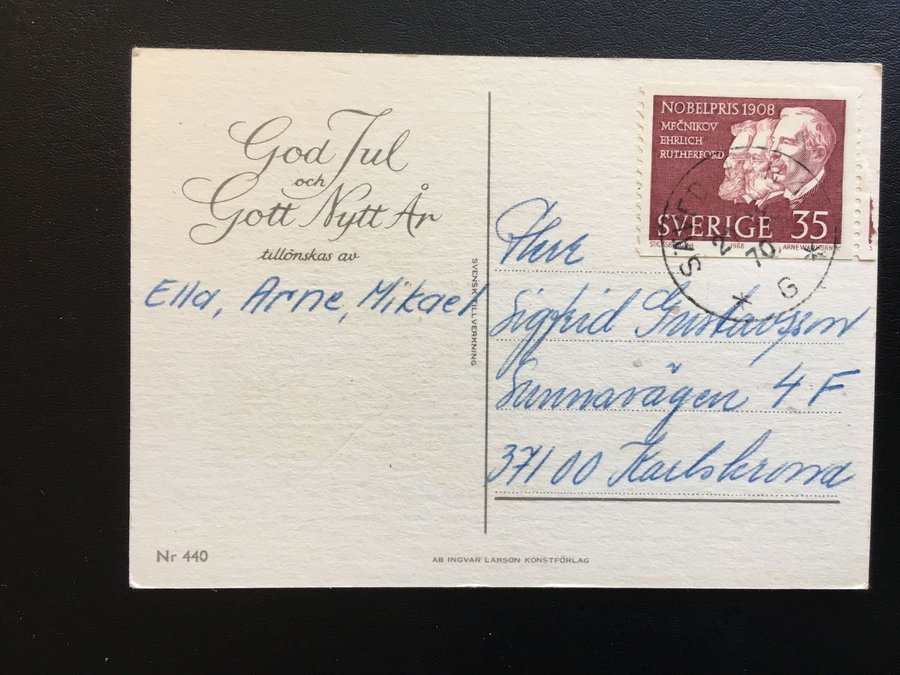 God Jul
och
Gott Nytt År
tillönskas av
Ella, Arne, Mikael
SVENSK TILLVERKNING
Nr 440
AB INGVAR LARSON KONSTFÖRLAG
NOBELPRIS 1908
MEČNIKOV
EHRLICH
RUTHERFORD
SVERIGE 35
1968
70
G
Sigfrid Gustavsson
Sunnavägen 4 F
371 00 Karlskrona